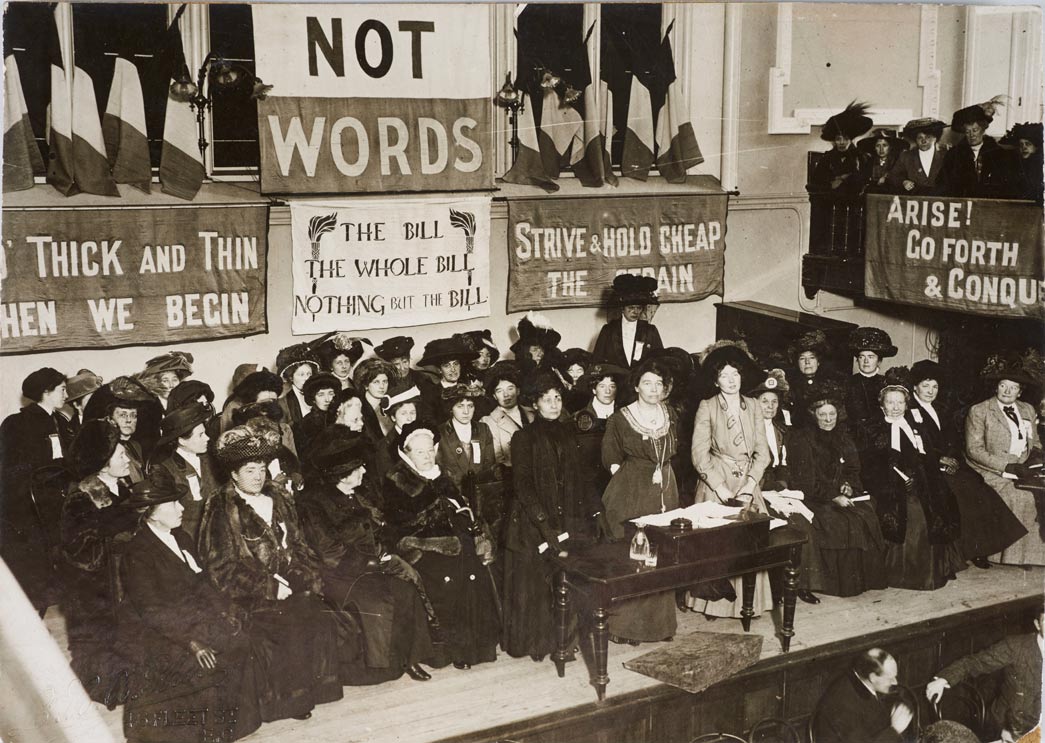 NOT
WORDS
THICK AND THIN
HEN WE BEGIN
THE BILL
THE WHOLE BILL
NOTHING BUT THE BILL
STRIVE & HOLD CHEAP
THE STRAIN
ARISE!
GO FORTH
& CONQU
FLEET ST